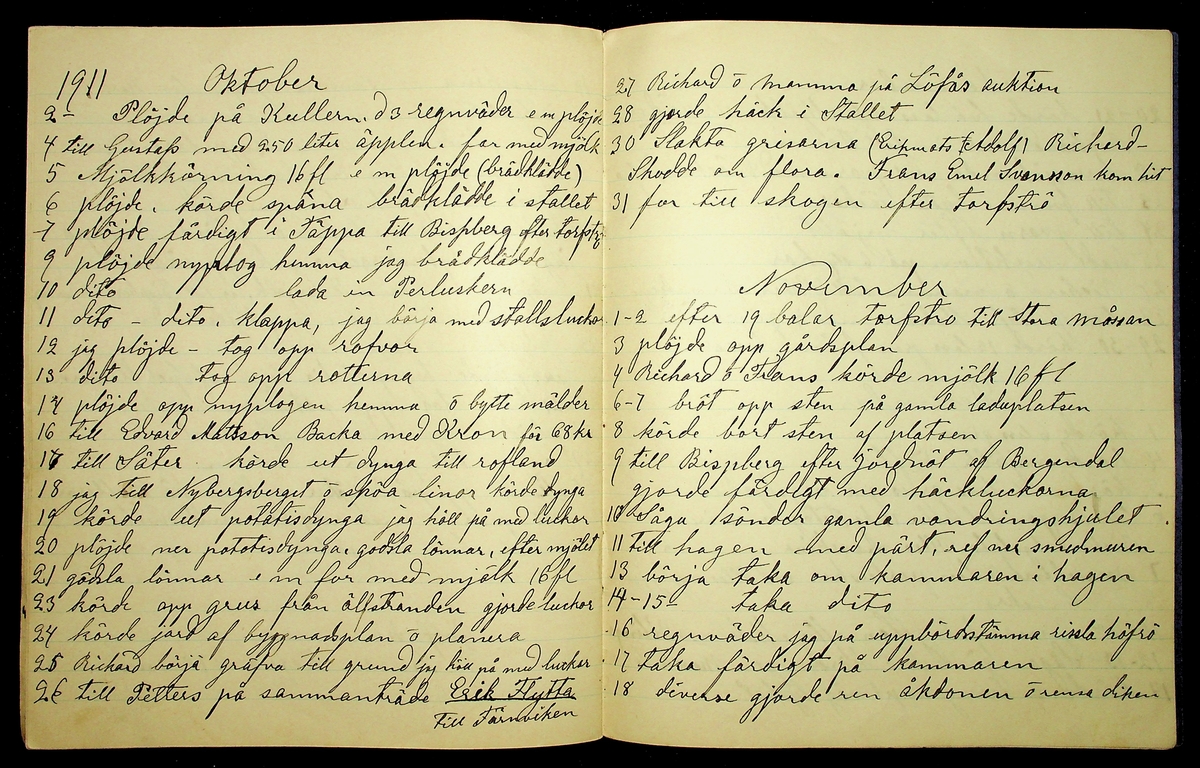 1911 Oktober
2- Plöjde på Kullern. d 3 regnväder e m plöjde
4 till Gustafs med 250 liter äpplen. for med mjölk
5 Mjölkkörning 16 fl e m plöjde (brädklädde)
6 plöjde. körde spåna brädklädde i stallet
7 plöjde färdigt i Täppa till Bispberg efter torfströ
9 plöjde nyplog hemma jag brädklädde
10 dito lada in Perluskern
11 dito - dito. klappa, jag börja med stallsluckor
12 jag plöjde - tog opp rofvor
13 dito tog opp rotterna
14 plöjde opp nyplogen hemma ö bytte mälder
16 till Edvard Mattsson Backa med Kron för 68 kr
17 till Säter. körde ut dynga till rofland
18 jag till Nybergsberget ö sköa linor körde dynga
19 körde ut potatisdynga jag höll på med luckor
20 plöjde ner potatisdynga. gödsla lönnar. efter mjölet
21 gödsla lönnar e m for med mjölk 16 fl
23 körde opp grus från älfstranden gjorde luckor
24 körde jord af byggnadsplan ö planera
25 Richard börja gräfva till grund jag höll på med luckor
26 till Petters på sammanträde Erik Flytta
till Tärnviken
27 Richard ö mamma på Löfås auktion
28 gjorde häck i Stallet
30 Slakta grisarna (Erikmats (Adolf) Richard-
Skodde om flora. Frans Emil Svensson kom hit
31 for till skogen efter torfströ
November
1-2 efter 19 balar torfströ till Stora mossan
3 plöjde opp gårdsplan
4 Richard ö Frans körde mjölk 16 fl
6-7 bröt opp sten på gamla laduplatsen
8 körde bort sten af platsen
9 till Bispberg efter jordnöt af Bergendal
gjorde färdigt med häckluckorna
10 Såga sönder gamla vandringshjulet.
11 till hagen med pärt, ref ner smedmuren
13 börja taka om kammaren i hagen
14-15- taka dito
16 regnväder jag på uppbördstämma rissla höfrö
17 taka färdigt på kammaren
18 diverse gjorde ren åkdonen ö rensa diken